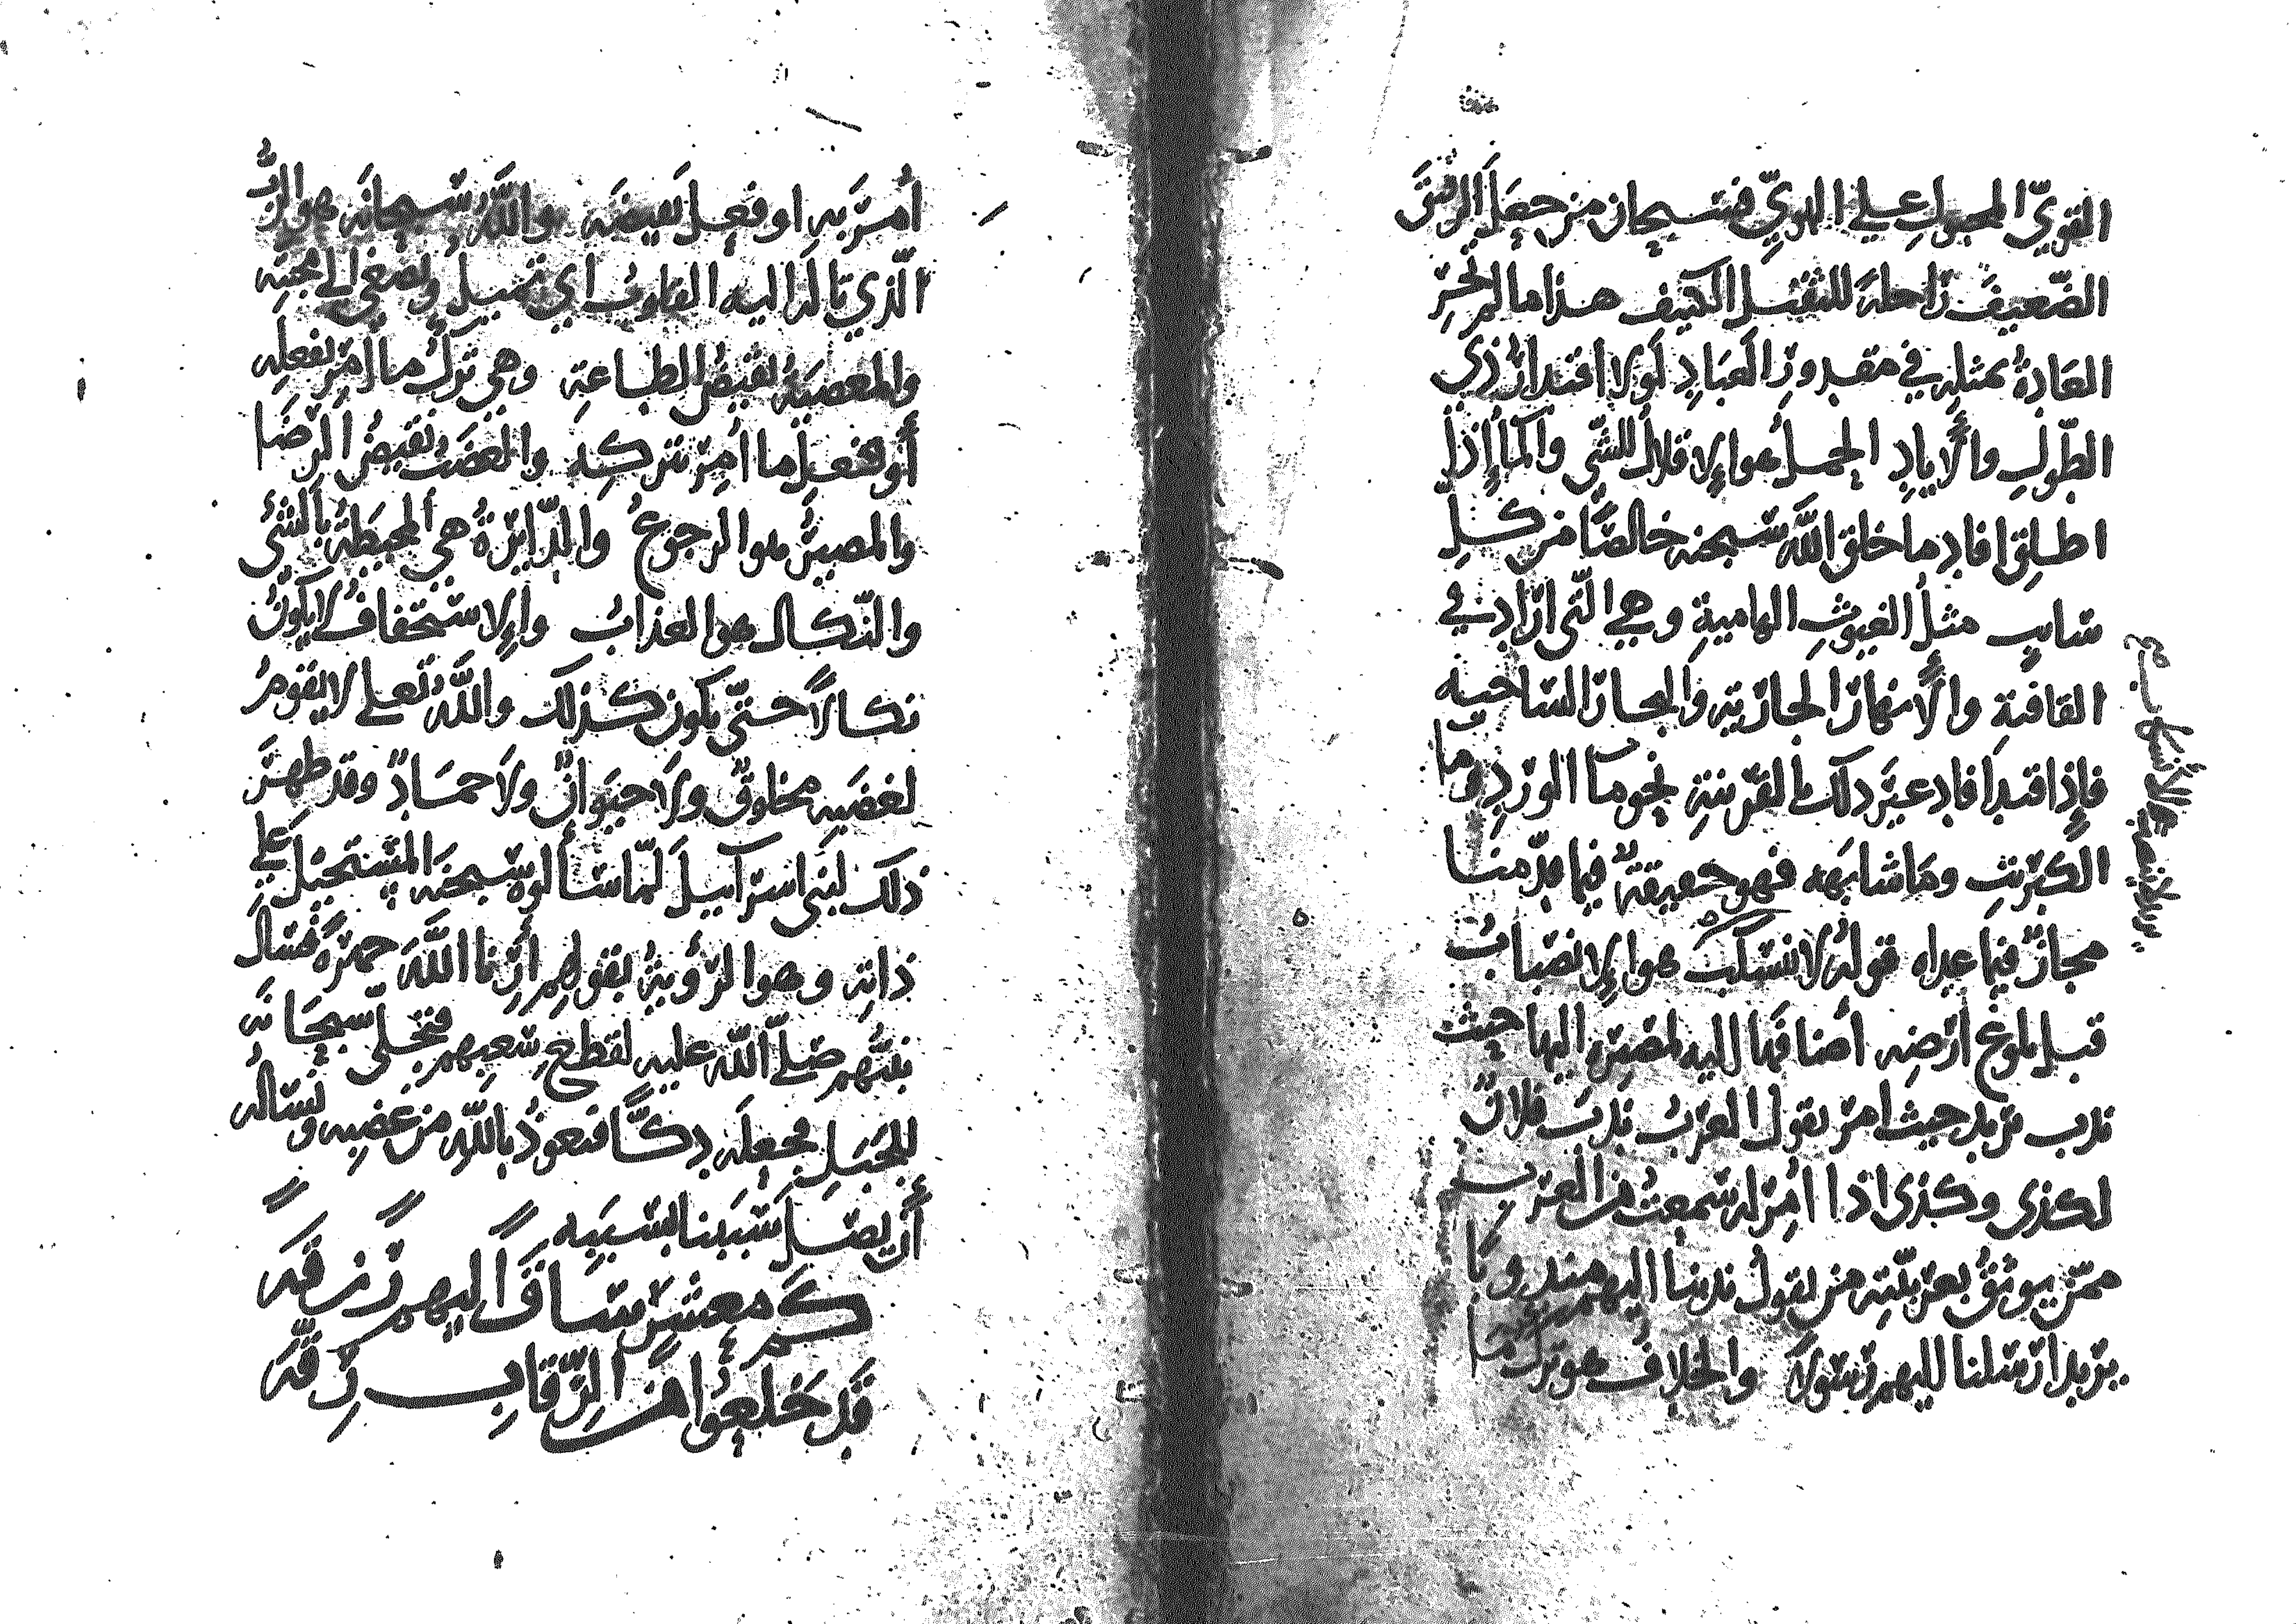 القويّ المسوا علي الهويّ فسبحان من جعل الريش
الضّعيف راحلة للثقيل الكثيف هذا ما لم تجر
العادة بمثله في مقدور العباد لولا اقتدار ذي
الطّول والأياد الحمل هو الإقلال للشي والمآ إذا
اطلق افاد ما خلق اللّه سبحنه خالصًا من كل
شايب مثل الغيوث الهامية وهي التي اراد في
القافية والأنهار الجارية والبحار الساجيه
فإذا قيد افاد غير ذلك بالقرينة نحو مآ الورد وما
الكبريت وما شابهه فهو حقيقةٌ فيما قدّمنا
مجازٌ فيما عداه قوله لا ننسكب هو الإنصباب
قبل بلوغ ارضه أضافها اليه لمصيره اليها حيث
ندب يريد حيث امر يقول العرب ندب فلانٌ
لكذى وكذى اذا أمر له سمعت من العرب
ممّن يوثق بعربيّته من يقول ندبنا اليهم مندوبًا
يريد ارسلنا اليهم رسولًا والخلاف هو ترك ما
الانصباب
أمر به او فعل نقيضه واللّه سبحانه هو الربّ
الّذي تاله اليه القلوب اي تميل وتصغي الي محبته
والمعصية نقيض الطاعة وهي ترك ما أمر بفعله
أو فعل ما امر بتركه والغضب نقيض الرضا
والمصير هو الرجوع والدّايرة هي المحيطة بالشي
والنّكال هو العذاب والإستخفاف لا يكون
نكالاً حتّى يكون كذلك واللّه تعلى لا يقوم
لغضبه مخلوق ولا حيوانٌ ولا جمادٌ وقد ظهر
ذلك لبنى اسرآييل لمّا سألوه سبحنه المستحيل علي
ذاته وهو الرؤية بقولهم أرنا اللّه جهرةً فسال
نبيّهم صلّى اللّه عليه لقطع شغبهم فتجلى سبحانه
للجبل فجعله دكًّا فنعوذ باللّه من غضبه ونساله
أن يصل سببنا بسببه
كم معشر ساق اليهم رزقه
قد خلعوا من الرقاب رقّه